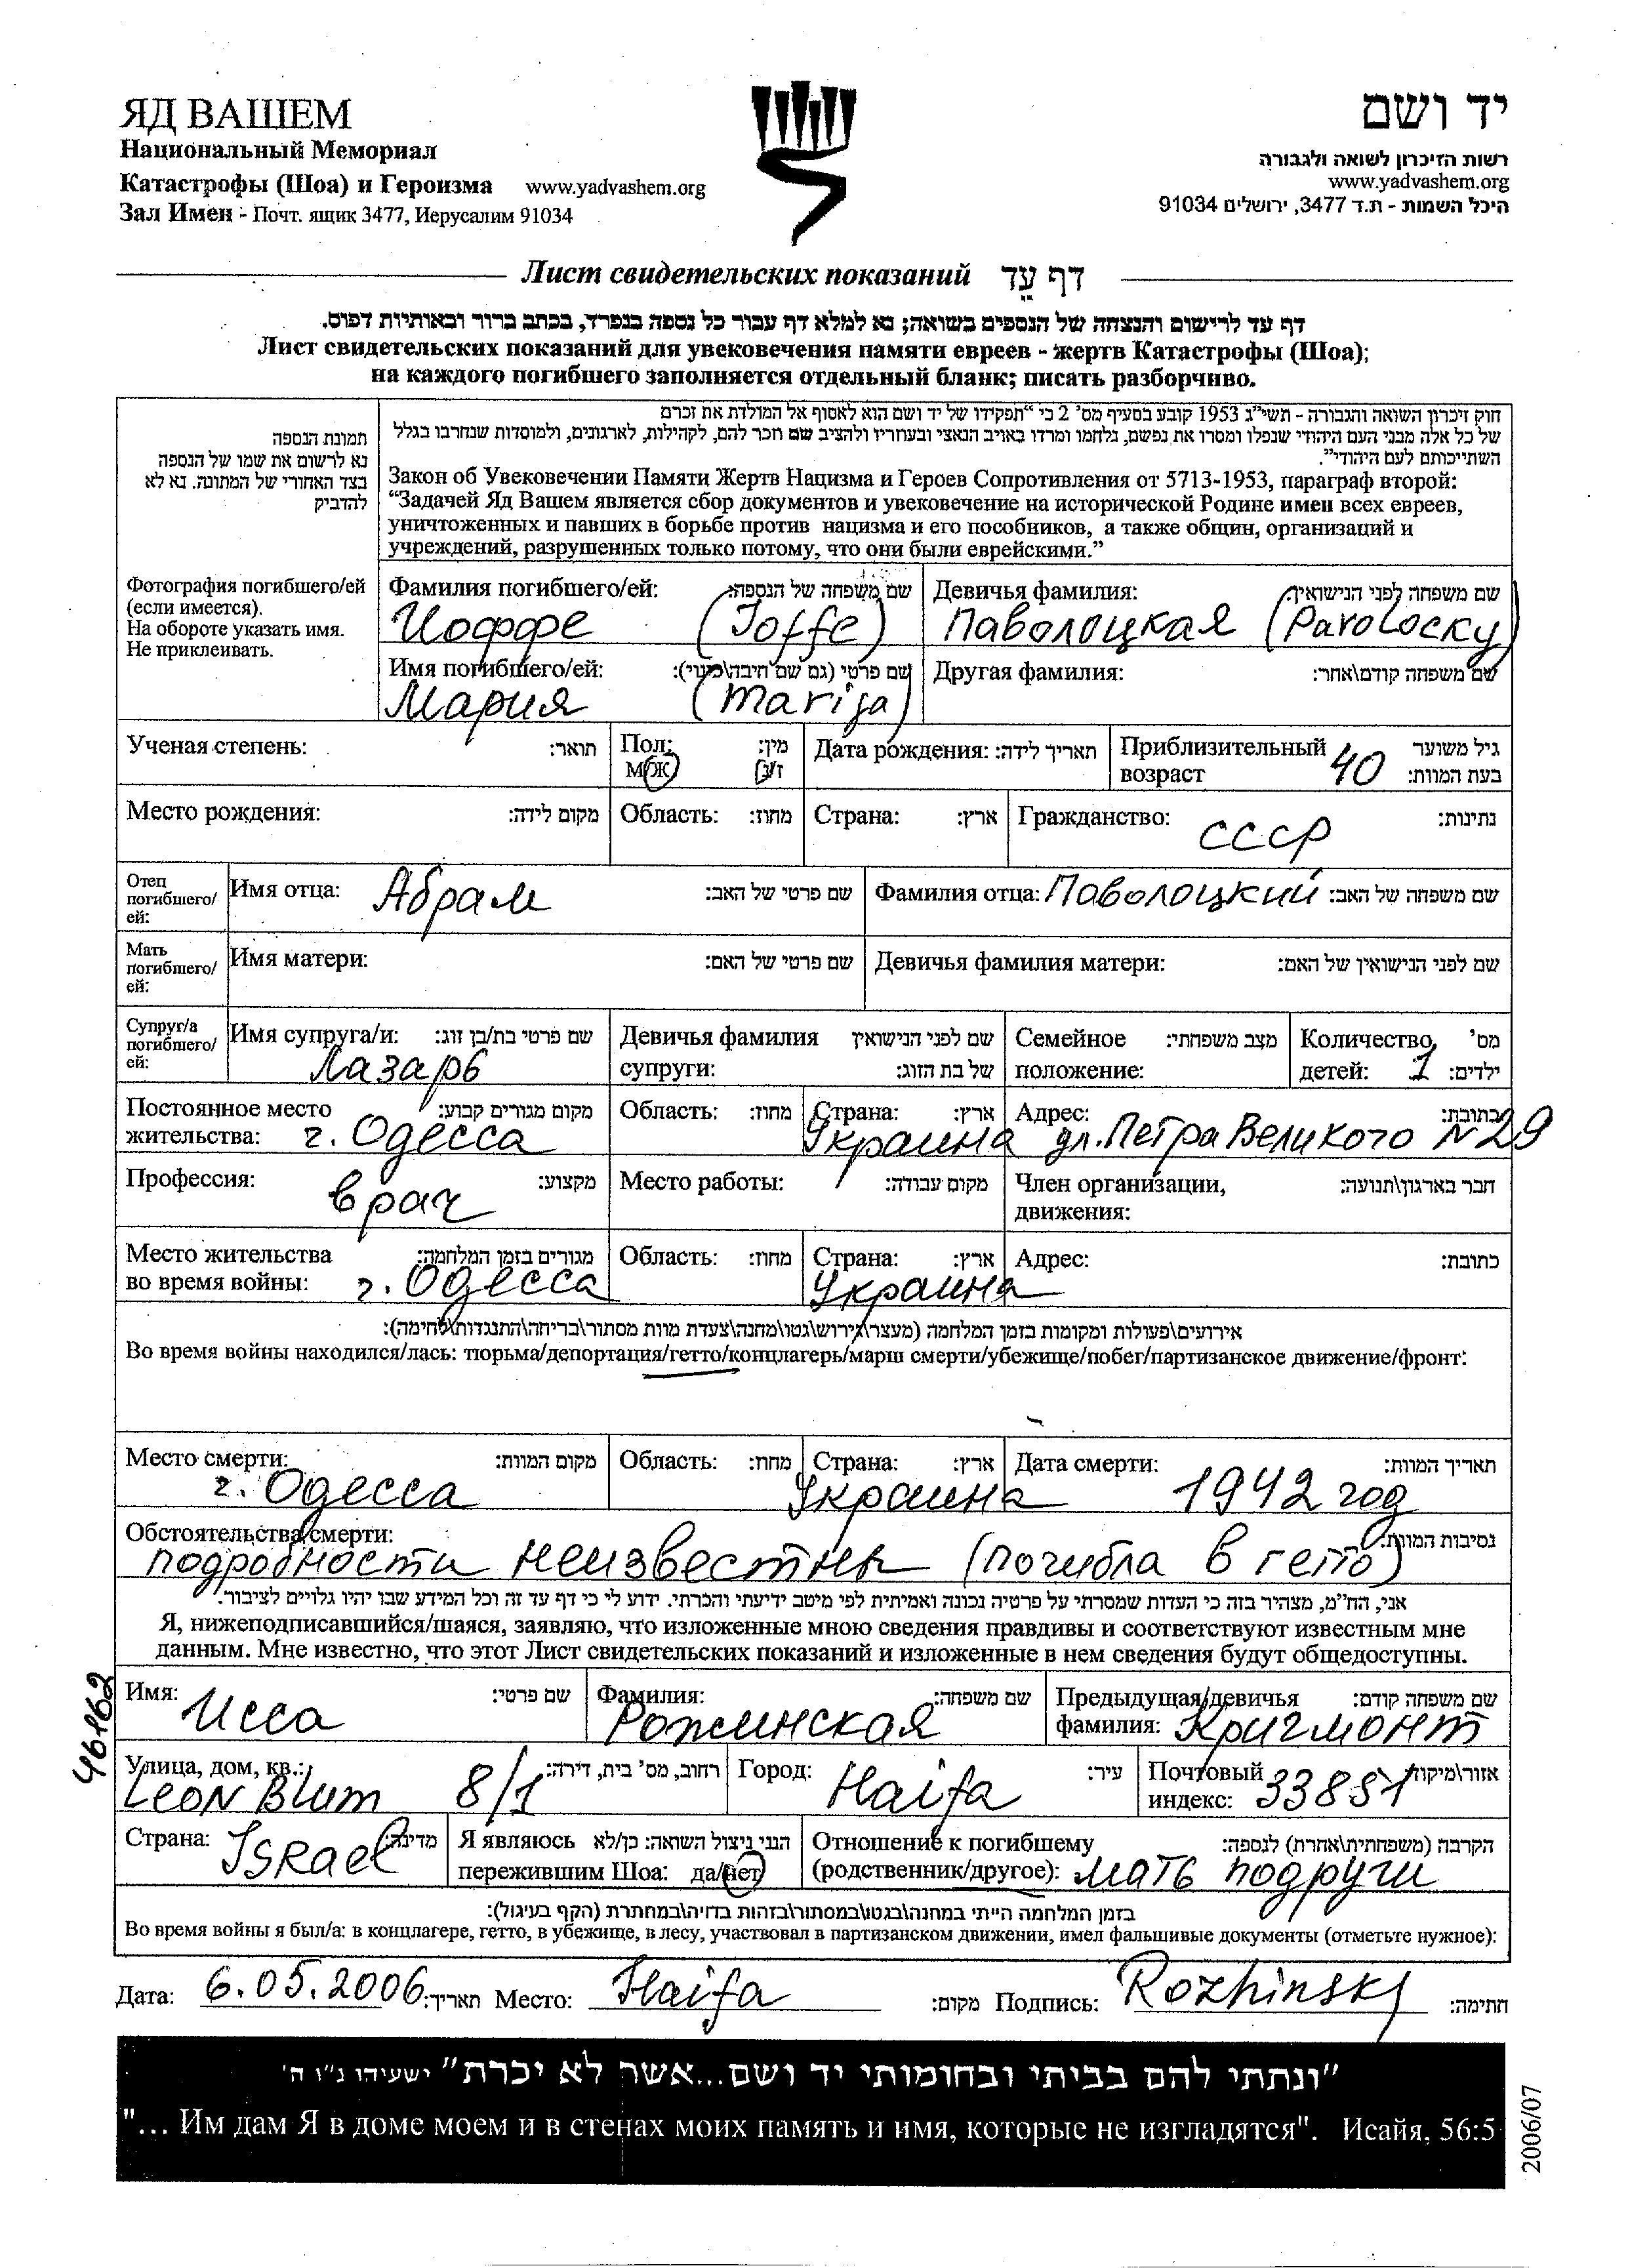 ЯД ВАШЕМ
Национальный Мемориал
Катастрофы (Шоа) и Героизма www.yadvashem.org
Зал Имен - Почт. ящик 3477, Иерусалим 91034
יד ושם
רשות הזיכרון לשואה ולגבורה
www.yadvashem.org
היכל השמות - ת.ד 3477, ירושלים 91034
Лист свидетельских показаний דף עֵד
דף עד לרישום והנצחה של הנספים בשואה; נא למלא דף עבור כל נספה בנפרד, בכתב ברור ובאותיות דפוס.
Лист свидетельских показаний для увековечения памяти евреев - жертв Катастрофы (Шоа);
на каждого погибшего заполняется отдельный бланк; писать разборчиво.
תמונת הנספה
נא לרשום את שמו של הנספה
בצד האחורי של התמונה. נא לא
להדביק
Фотография погибшего/ей
(если имеется).
На обороте указать имя.
Не приклеивать.
חוק זיכרון השואה והגבורה - תשי"ג 1953 קובע בסעיף מס' 2 כי "תפקידו של יד ושם הוא לאסוף אל המולדת את זכרם
של כל אלה מבני העם היהודי שנפלו ומסרו את נפשם, נלחמו ומרדו באויב הנאצי ובעוזריו ולהציב שם וזכר להם, לקהילות, לארגונים, ולמוסדות שנחרבו בגלל
השתייכותם לעם היהודי".
Закон об Увековечении Памяти Жертв Нацизма и Героев Сопротивления от 5713-1953, параграф второй:
"Задачей Яд Вашем является сбор документов и увековечение на исторической Родине имен всех евреев,
уничтоженных и павших в борьбе против нацизма и его пособников, а также общин, организаций и
учреждений, разрушенных только потому, что они были еврейскими."
Фамилия погибшего/ей: שם משפחה של הנספה:
Иоффе (Joffe)
Девичья фамилия: שם משפחה לפני הנישואין:
Паволоцкая (Pavolocky)
Имя погибшего/ей: שם פרטי (גם שם חיבה\כינוי):
Мария (Marija)
Другая фамилия: שם משפחה קודם\אחר:
Ученая степень: תואר:
Пол: מין:
М/Ж ז/נ
Дата рождения: תאריך לידה:
Приблизительный возраст 40 גיל משוער בעת המוות:
Место рождения: מקום לידה:
Область: מחוז:
Страна: ארץ:
Гражданство: СССР נתינות:
Отец погибшего/ей:
Имя отца: Абрам שם פרטי של האב:
Фамилия отца: Паволоцкий שם משפחה של האב:
Мать погибшего/ей:
Имя матери: שם פרטי של האם:
Девичья фамилия матери: שם לפני הנישואין של האם:
Супруг/а погибшего/ей:
Имя супруга/и: שם פרטי בת/בן זוג:
Лазарь
Девичья фамилия супруги: שם לפני הנישואין של בת הזוג:
Семейное положение: מצב משפחתי:
Количество детей: 1 מס' ילדים:
Постоянное место жительства: г. Одесса מקום מגורים קבוע:
Область: מחוז:
Страна: ארץ:
Украина
Адрес: כתובת:
ул. Петра Великого N 29
Профессия: врач מקצוע:
Место работы: מקום עבודה:
Член организации, движения: חבר בארגון\תנועה:
Место жительства во время войны: г. Одесса מגורים בזמן המלחמה:
Область: מחוז:
Страна: ארץ:
Украина
Адрес: כתובת:
אירועים\פעולות ומקומות בזמן המלחמה (מעצר\גירוש\גטו\מחנה\צעדת מוות מסתור\בריחה\התנגדות\לחימה):
Во время войны находился/лась: тюрьма/депортация/гетто/концлагерь/марш смерти/убежище/побег/партизанское движение/фронт:
Место смерти: מקום המוות:
г. Одесса
Область: מחוז:
Страна: ארץ:
Украина
Дата смерти: 1942 год תאריך המוות:
Обстоятельства смерти: נסיבות המוות:
подробности неизвестны (погибла в гетто)
אני, הח"מ, מצהיר בזה כי העדות שמסרתי על פרטיה נכונה ואמיתית לפי מיטב ידיעתי והכרתי. ידוע לי כי דף עד זה וכל המידע שבו יהיו גלויים לציבור.
Я, нижеподписавшийся/шаяся, заявляю, что изложенные мною сведения правдивы и соответствуют известным мне
данным. Мне известно, что этот Лист свидетельских показаний и изложенные в нем сведения будут общедоступны.
46162
Имя: Исса שם פרטי:
Фамилия: שם משפחה:
Рожинская
Предыдущая/девичья фамилия: Кригмонт שם משפחה קודם:
Улица, дом, кв.: רחוב, מס' בית, דירה:
Leon Blum 8/1
Город: Haifa עיר:
Почтовый индекс: 33851 אזור\מיקוד:
Страна: Israel מדינה:
Я являюсь пережившим Шоа: да/нет הנני ניצול השואה: כן/לא
Отношение к погибшему (родственник/другое): мать подруги הקרבה (משפחתית\אחרת) לנספה:
בזמן המלחמה הייתי במחנה\בגטו\במסתור\בזהות בדויה\במחתרת (הקף בעיגול):
Во время войны я был/а: в концлагере, гетто, в убежище, в лесу, участвовал в партизанском движении, имел фальшивые документы (отметьте нужное):
Дата: 6.05.2006 תאריך: Место: Haifa מקום: Подпись: Rozhinsky חתימה:
"ונתתי להם בביתי ובחומותי יד ושם...אשר לא יכרת" ישעיהו נ"ו ה'
"... Им дам Я в доме моем и в стенах моих память и имя, которые не изгладятся". Исайя, 56:5
2006/07